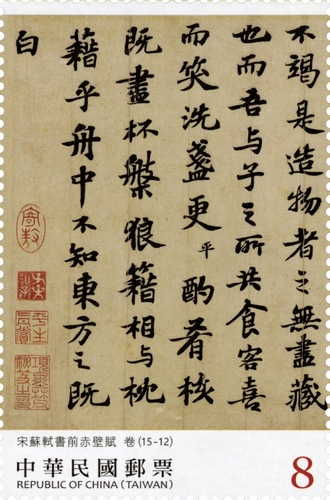 不竭是造物者之無盡藏
也而吾与子之所共食客喜
而笑洗盞更平酌肴核
既盡杯槃狼籍相与枕
藉乎舟中不知東方之既
白
宋蘇軾書前赤壁賦 卷 (15-12)
中華民國郵票
REPUBLIC OF CHINA (TAIWAN)
8